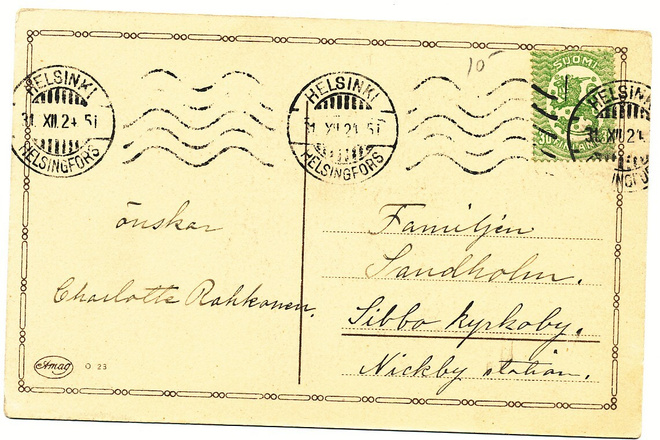 10
HELSINKI
31. XII. 24 51
HELSINGFORS
HELSINKI
31. XII. 24 51
HELSINGFORS
SUOMI
HELSINKI
31. XII. 24
önskar
Charlotte Rahkonen.
Familjen
Sandholm.
Sibbo kyrkoby.
Nickby station.
Amag
O 23